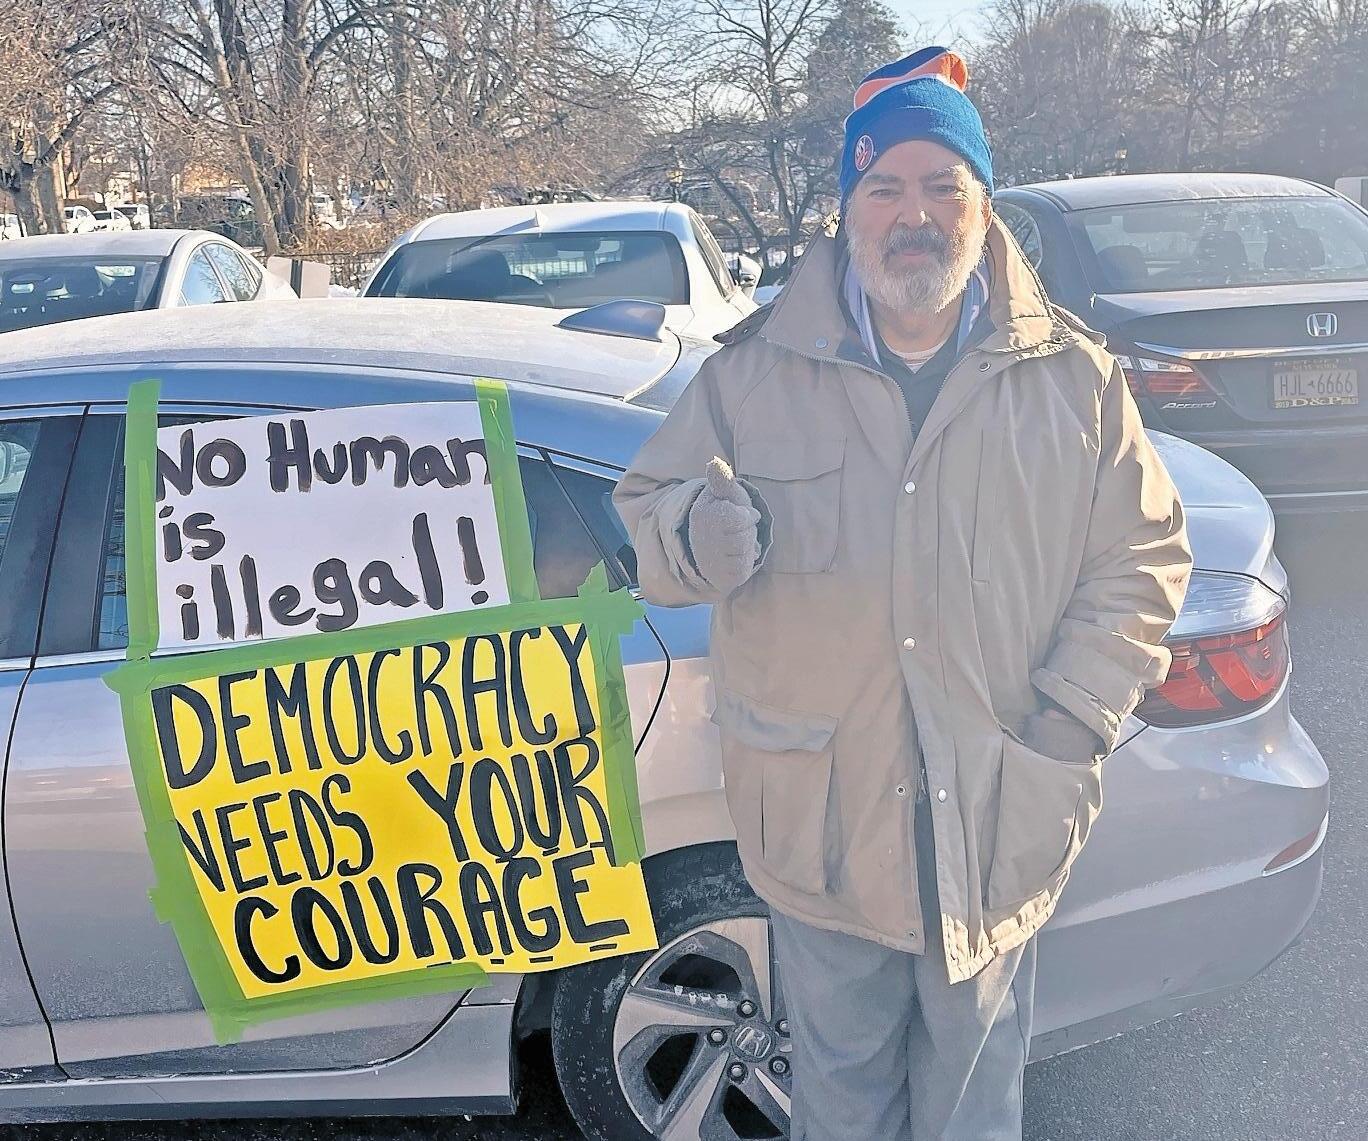 No Human
is
illegal!
DEMOCRACY
NEEDS YOUR
COURAGE
Accord
HJL 6666
D&P